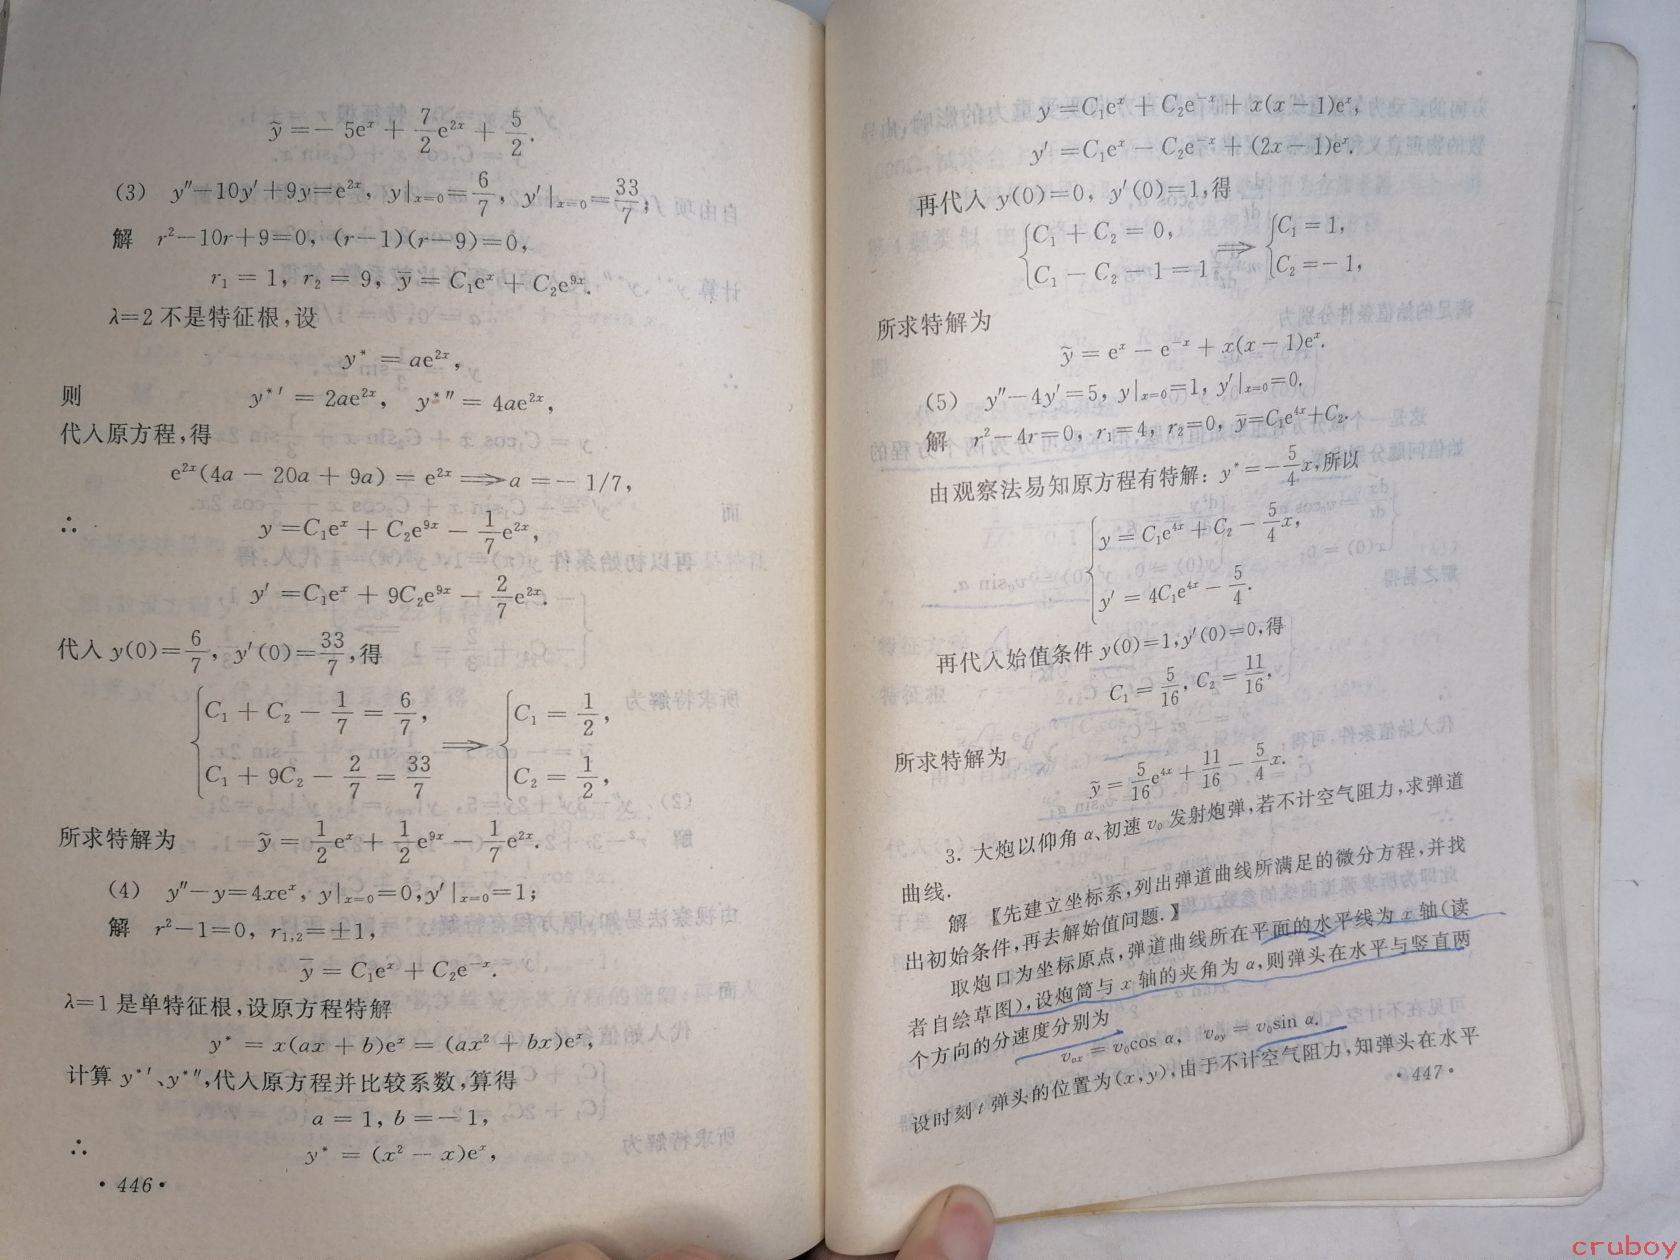 ỹ = − 5eˣ + 7/2 e²ˣ + 5/2.
(3) y″−10y′+9y=e²ˣ, y|ₓ₌₀=6/7, y′|ₓ₌₀=33/7;
解 r²−10r+9=0, (r−1)(r−9)=0,
r₁ = 1, r₂ = 9, ȳ = C₁eˣ + C₂e⁹ˣ.
λ=2 不是特征根,设
y* = ae²ˣ,
则 y*′ = 2ae²ˣ, y*″ = 4ae²ˣ,
代入原方程,得
e²ˣ(4a − 20a + 9a) = e²ˣ ⟹ a = − 1/7,
∴ y =C₁eˣ + C₂e⁹ˣ − 1/7 e²ˣ,
y′ =C₁eˣ + 9C₂e⁹ˣ − 2/7 e²ˣ.
代入 y(0)=6/7, y′(0)=33/7,得
{C₁ + C₂ − 1/7 = 6/7, C₁ + 9C₂ − 2/7 = 33/7 ⟹ {C₁ = 1/2, C₂ = 1/2,
所求特解为 ỹ = 1/2 eˣ + 1/2 e⁹ˣ − 1/7 e²ˣ.
(4) y″−y=4xeˣ, y|ₓ₌₀=0,y′|ₓ₌₀=1;
解 r²−1=0, r₁,₂=±1,
ȳ = C₁eˣ + C₂e⁻ˣ.
λ=1 是单特征根,设原方程特解
y* = x(ax + b)eˣ = (ax² + bx)eˣ,
计算 y*′、y*″,代入原方程并比较系数,算得
a = 1, b = − 1,
∴ y* = (x² − x)eˣ,
· 446 ·
y =C₁eˣ + C₂e⁻ˣ + x(x − 1)eˣ,
y′ =C₁eˣ − C₂e⁻ˣ + (2x − 1)eˣ.
再代入 y(0)=0, y′(0)=1,得
{C₁ + C₂ = 0, C₁ − C₂ − 1 = 1 ⟹ {C₁ = 1, C₂ = − 1,
所求特解为
ỹ = eˣ − e⁻ˣ + x(x − 1)eˣ.
(5) y″−4y′=5, y|ₓ₌₀=1, y′|ₓ₌₀=0.
解 r²−4r=0, r₁=4, r₂=0, ȳ=C₁e⁴ˣ+C₂.
由观察法易知原方程有特解: y*=−5/4 x,所以
{y = C₁e⁴ˣ + C₂ − 5/4 x,
y′ = 4C₁e⁴ˣ − 5/4.
再代入始值条件 y(0)=1,y′(0)=0,得
C₁ = 5/16, C₂ = 11/16,
所求特解为
ỹ = 5/16 e⁴ˣ + 11/16 − 5/4 x.
3. 大炮以仰角 α、初速 v₀ 发射炮弹,若不计空气阻力,求弹道
曲线.
解 〖先建立坐标系,列出弹道曲线所满足的微分方程,并找
出初始条件,再去解始值问题.〗
取炮口为坐标原点,弹道曲线所在平面的水平线为 x 轴(读
者自绘草图),设炮筒与 x 轴的夹角为 α,则弹头在水平与竖直两
个方向的分速度分别为
v₀ₓ = v₀cos α, v₀y = v₀sin α.
设时刻 t 弹头的位置为(x,y),由于不计空气阻力,知弹头在水平
· 447 ·
cruboy